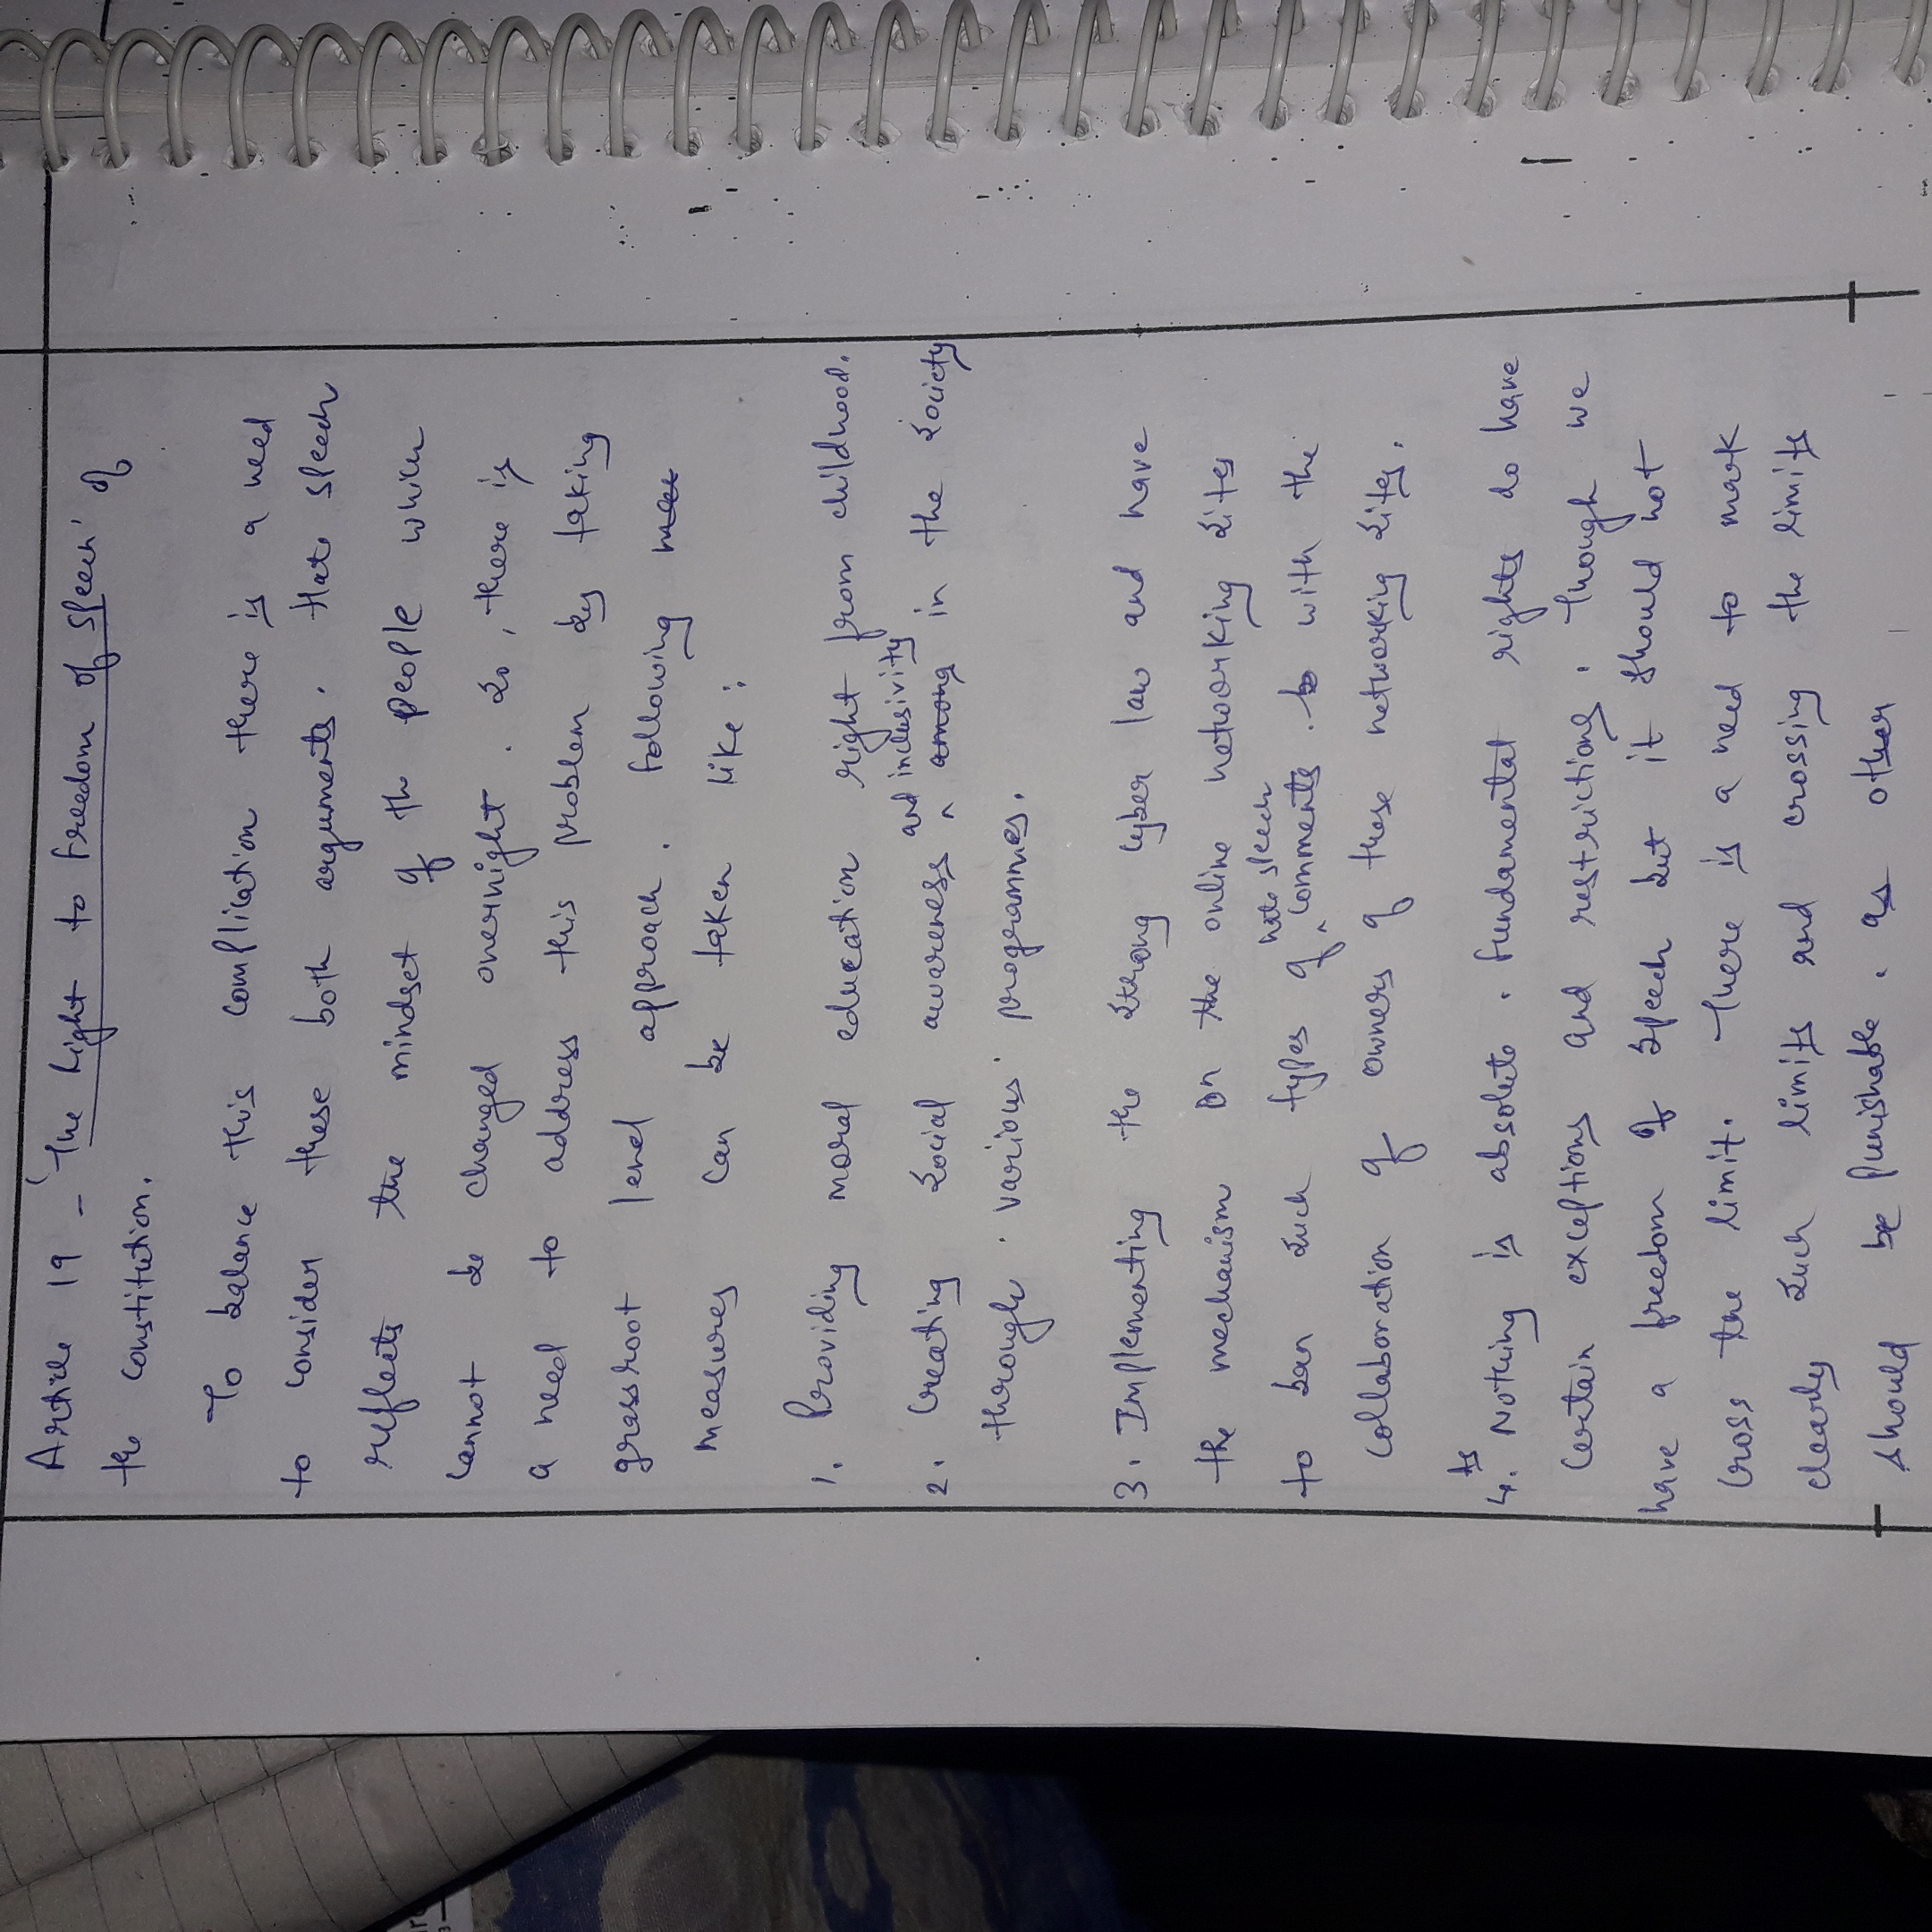 Article 19 - 'The Right to freedom of speech' of
the constitution.
To balance this complication there is a need
to consider these both arguments. Hate speech
reflects the mindset of the people which
cannot be changed overnight. So, there is
a need to address this problem by taking
grassroot level approach. Following meet
measures can be taken like:
1. Providing moral education right from childhood.
2. Creating social awareness and inclusivity among in the society
through various programmes.
3. Implementing the strong cyber law and have
the mechanism on the online networking sites
to ban such types of hate speech comments. to with the
collaboration of owners of these networking sites.
4. As Nothing is absolute. Fundamental rights do have
certain exceptions and restrictions. Though we
have a freedom of speech but it should not
cross the limit. There is a need to mark
clearly such limits and crossing the limits
should be punishable. as other